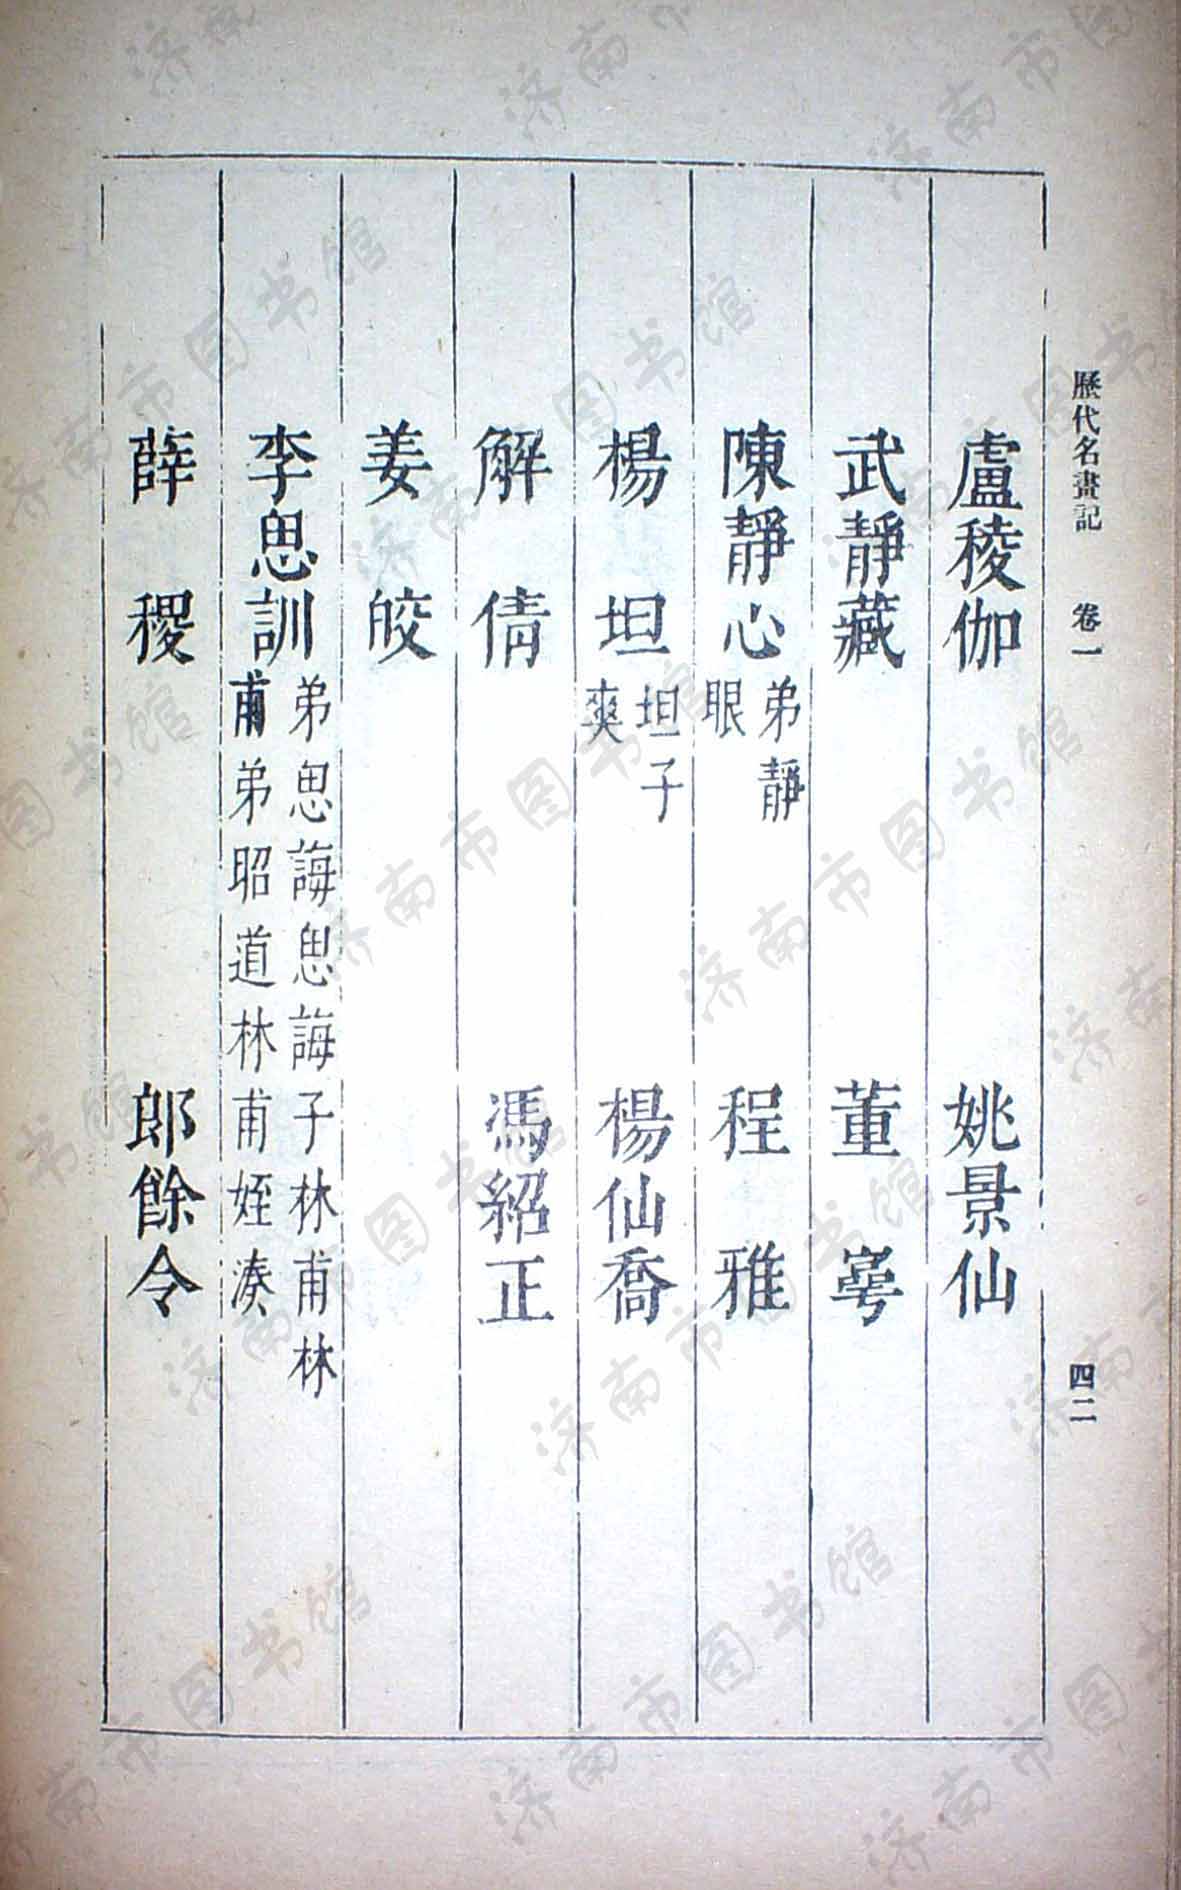 歷代名畫記　卷一　四二
盧稜伽　姚景仙
武靜藏　董㝧
陳靜心　弟靜眼　程雅
楊坦　坦子爽　楊仙喬
解倩　馮紹正
姜皎
李思訓　弟思誨思誨子林甫林
甫弟昭道林甫姪湊
薛稷　郎餘令
济南市图书馆